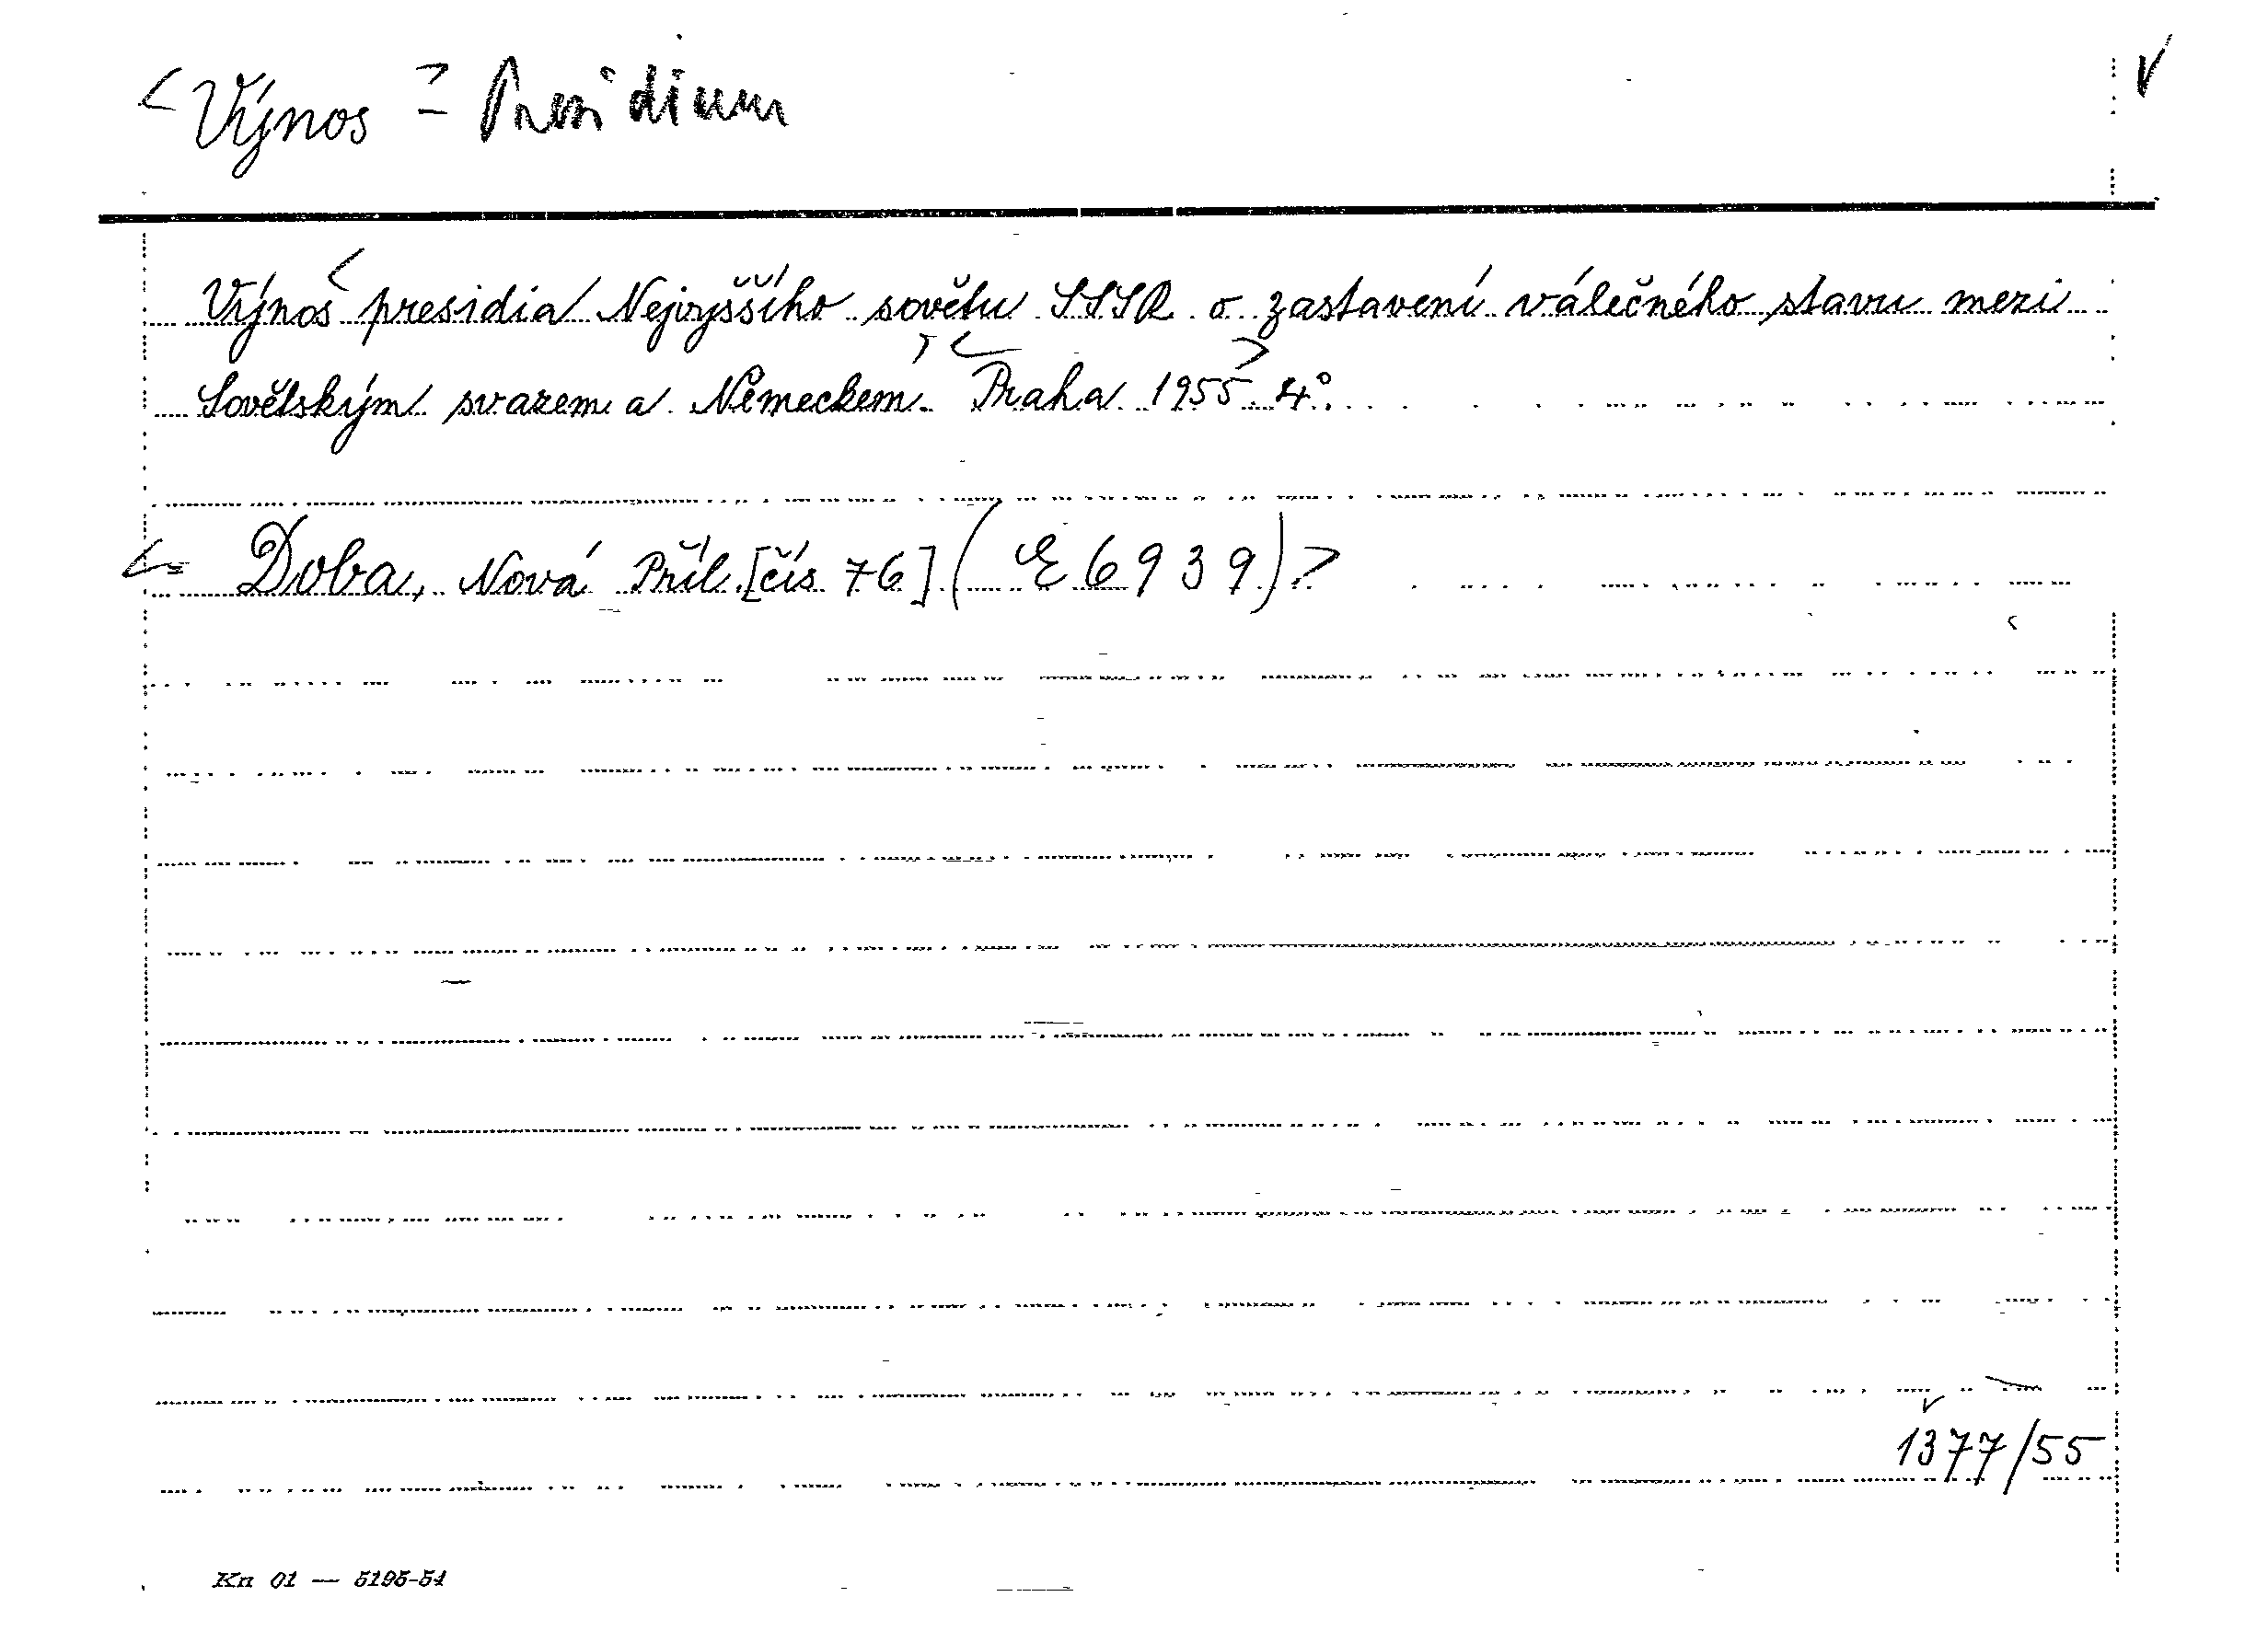 Výnos = Presidium
Výnos presidia Nejvyššího sovětu SSSR o zastavení válečného stavu mezi
Sovětským svazem a Německem. Praha 1955. 4°.
Doba, Nová Příl. [čís 76] (E 6939)
1377/55
Kn 01 — 5195-54